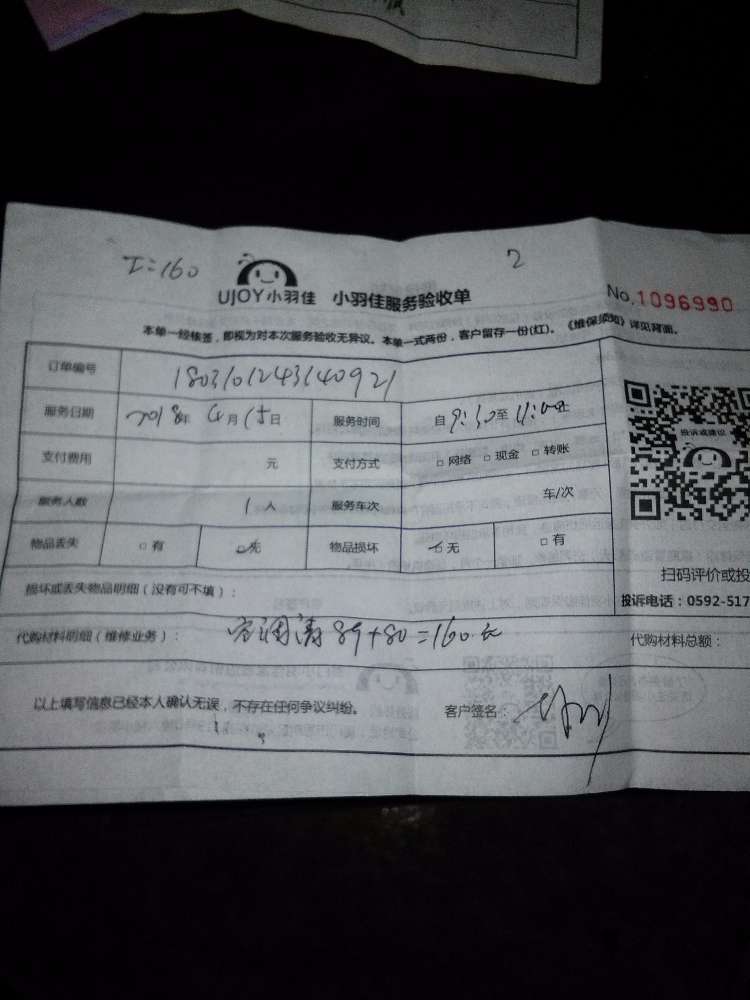 工:160
2
UJOY小羽佳 小羽佳服务验收单
No.1096990
本单一经核签,即视为对本次服务验收无异议。本单一式两份,客户留存一份(红)。《维保须知》详见背面。
订单编号 1803101243140921
服务日期 2018年 4月15日 服务时间 自9:30至11:00止
支付费用 元 支付方式 □网络 □现金 □转账
服务人数 1人 服务车次 车/次
物品丢失 □有 □无 物品损坏 □无 □有
投诉或建议
扫码评价或投
损坏或丢失物品明细(没有可不填):
投诉电话:0592-517
代购材料明细(维修业务): 空调清 89+80=160元
代购材料总额:
以上填写信息已经本人确认无误,不存在任何争议纠纷。 客户签名: